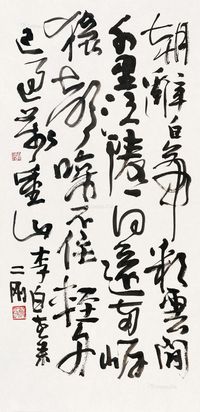 朝辭白帝彩雲間
千里江陵一日還兩岸
猿聲啼不住輕舟
已過萬重山李白
二刚